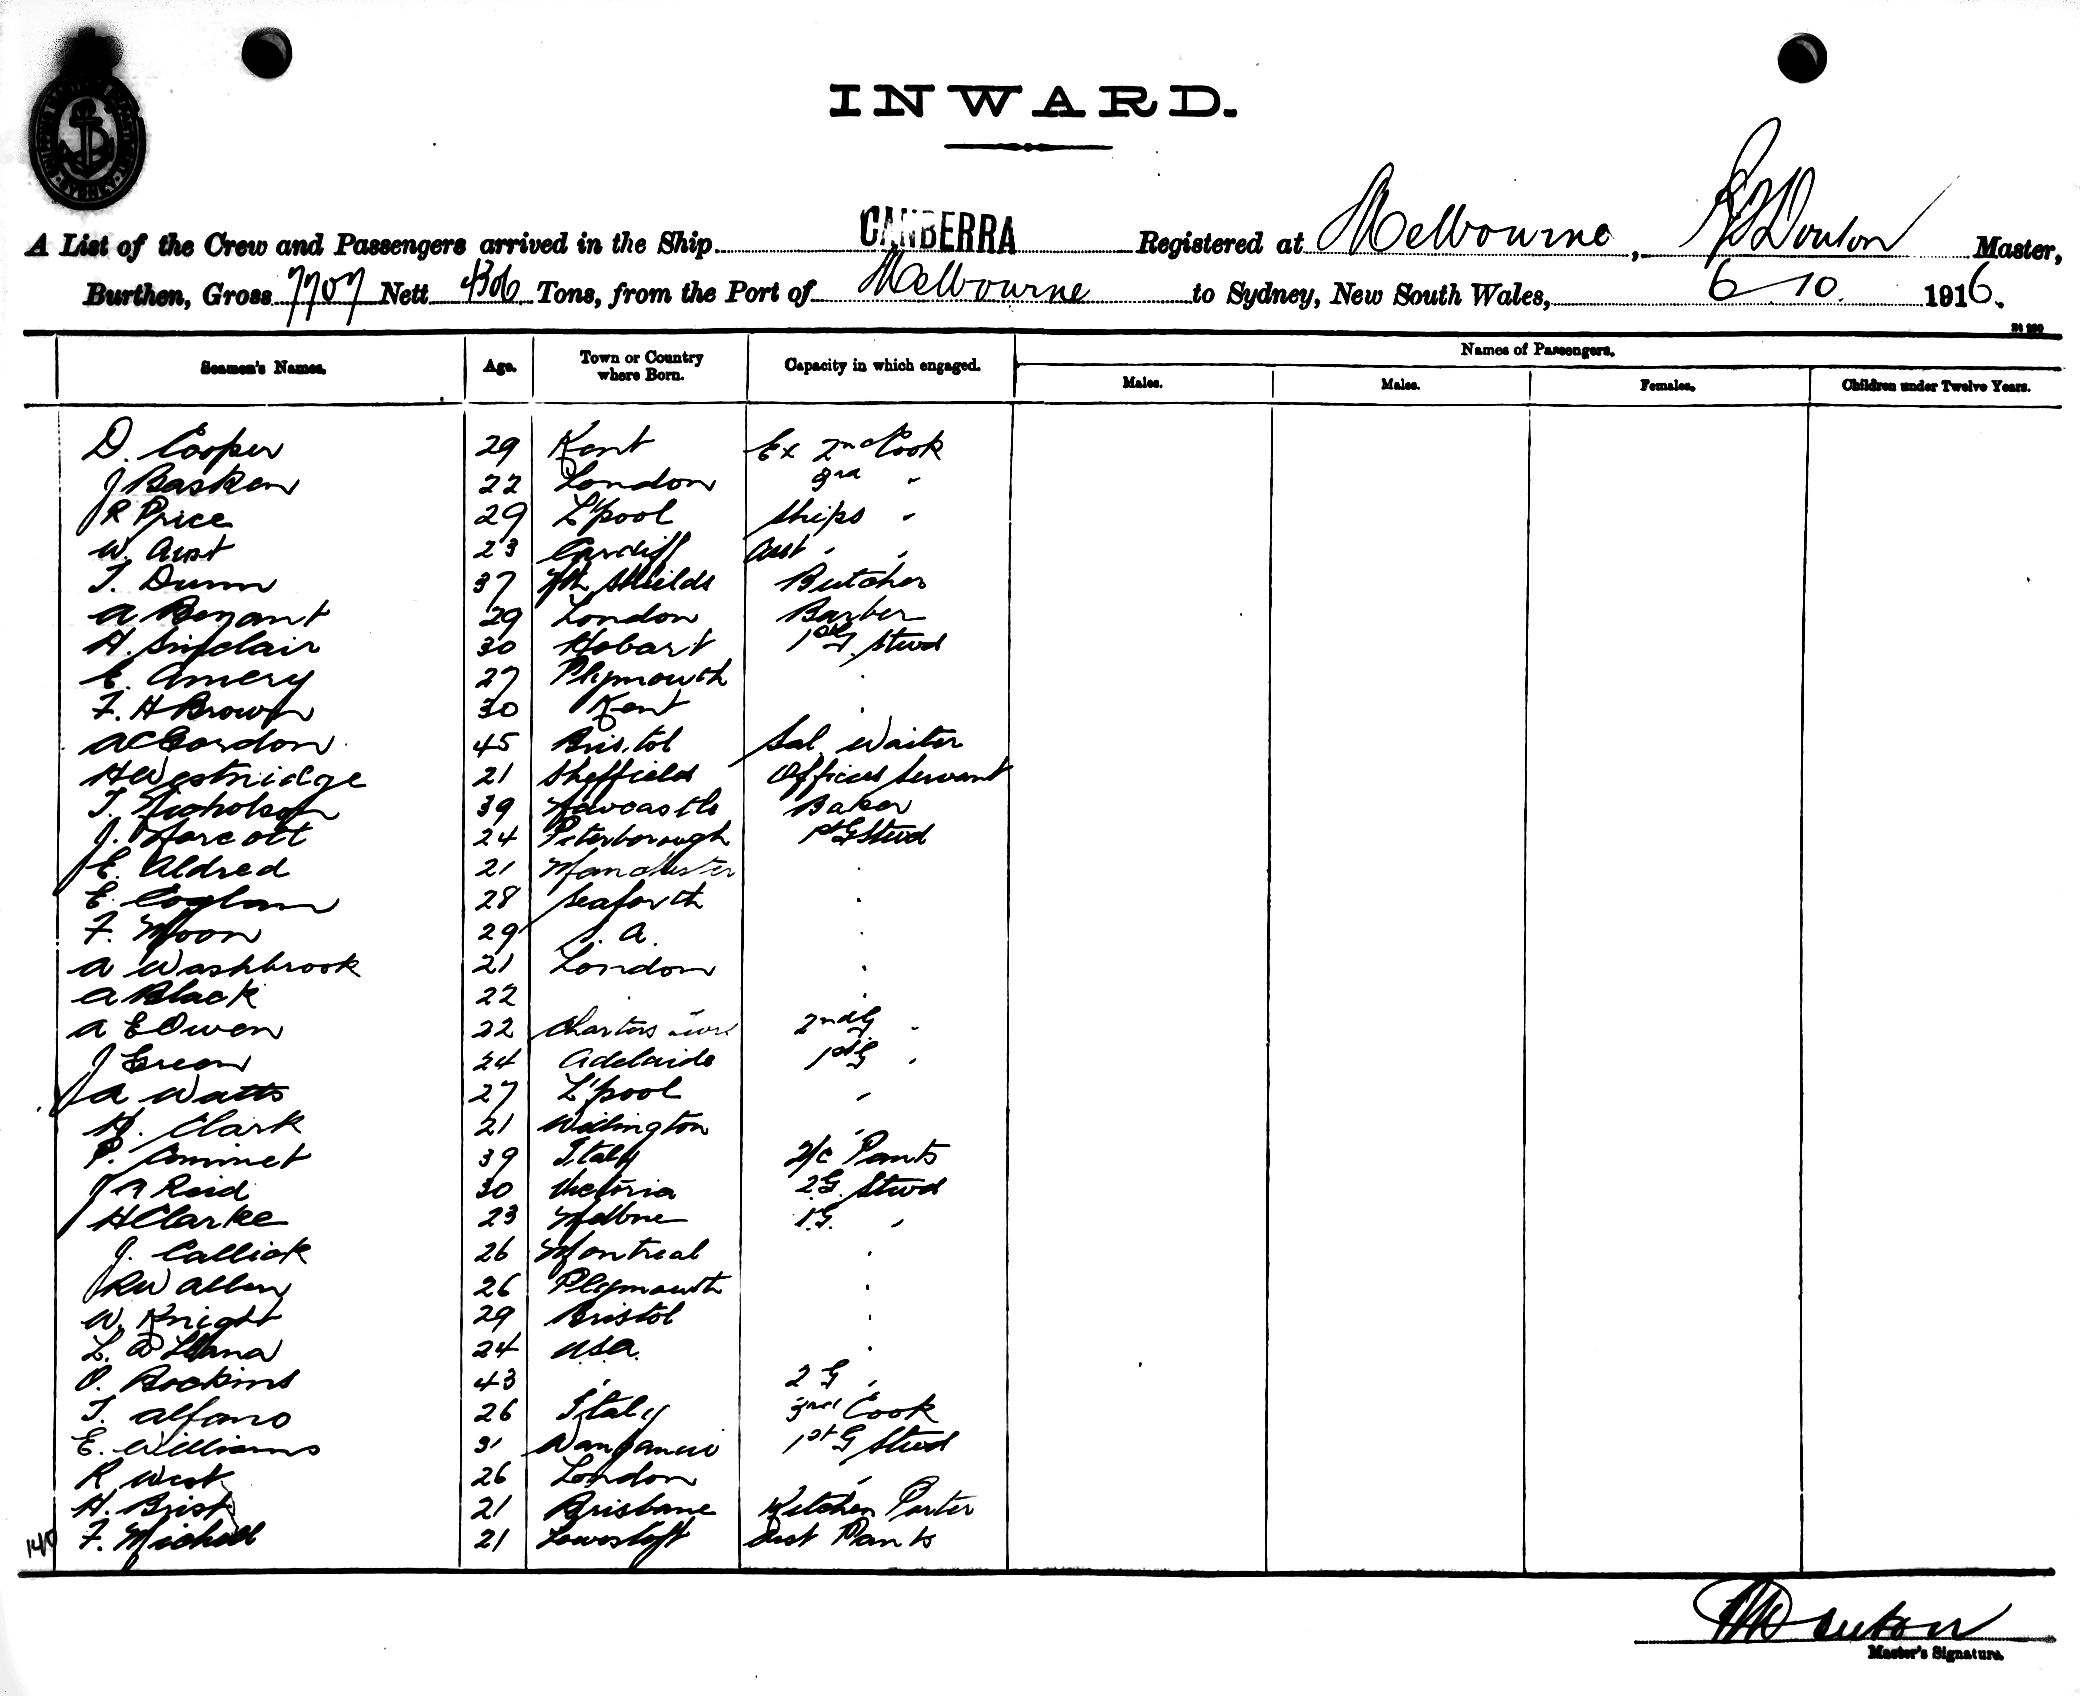 INWARD.
A List of the Crew and Passengers arrived in the Ship CANBERRA Registered at Melbourne, Master,
Burthen, Gross 7707 Nett Tons, from the Port of Melbourne to Sydney, New South Wales, 6 10. 1916.
Seamen's Names. Age. Town or Country where Born. Capacity in which engaged. Names of Passengers.
Males. Males. Females. Children under Twelve Years.
D. Cooper 29 Kent Ex 2nd Cook
J Basken 22 London 3rd "
R Price 29 L'pool Ships "
W. Aust 23 Cardiff Asst " "
T. Dunn 37 Nth Shields Butcher
A Bryant 29 London Barber
H. Sinclair 30 Hobart 1st G. Stwd
E. Amery 27 Plymouth "
F. H Brown 30 Kent "
A C Gordon 45 Bristol Sal Waiter
H Westridge 21 Sheffield Officers Servant
T. Nicholson 39 Newcastle Baker
J. Harcott 24 Peterborough 1st G Stwd
E. Aldred 21 Manchester "
E Coglan 28 Seaforth "
F. Moon 29 S. A. "
A Washbrook 21 London "
A Black 22 " "
A E Owen 22 Charters 2nd G "
J Green 24 Adelaide 1st G "
A Watts 27 L'pool "
H. Clark 21 Wellington "
P. 39 Italy 2/c Pants
J A Reid 30 Victoria 2 G. Stwd
H Clarke 23 Melbne 1.G. "
J. Callick 26 Montreal "
R W Allen 26 Plymouth "
W. Knight 29 Bristol "
L. 24 USA. "
O. Bockins 43 " 2 G "
T. Alfano 26 Italy 3rd Cook
E. Williams 31 Wanganui 1st G Stwd
R West 26 London "
H. Brist 21 Brisbane Kitchen Porter
140 F. Michell 21 Lowestoft Asst Pants
Master's Signature.